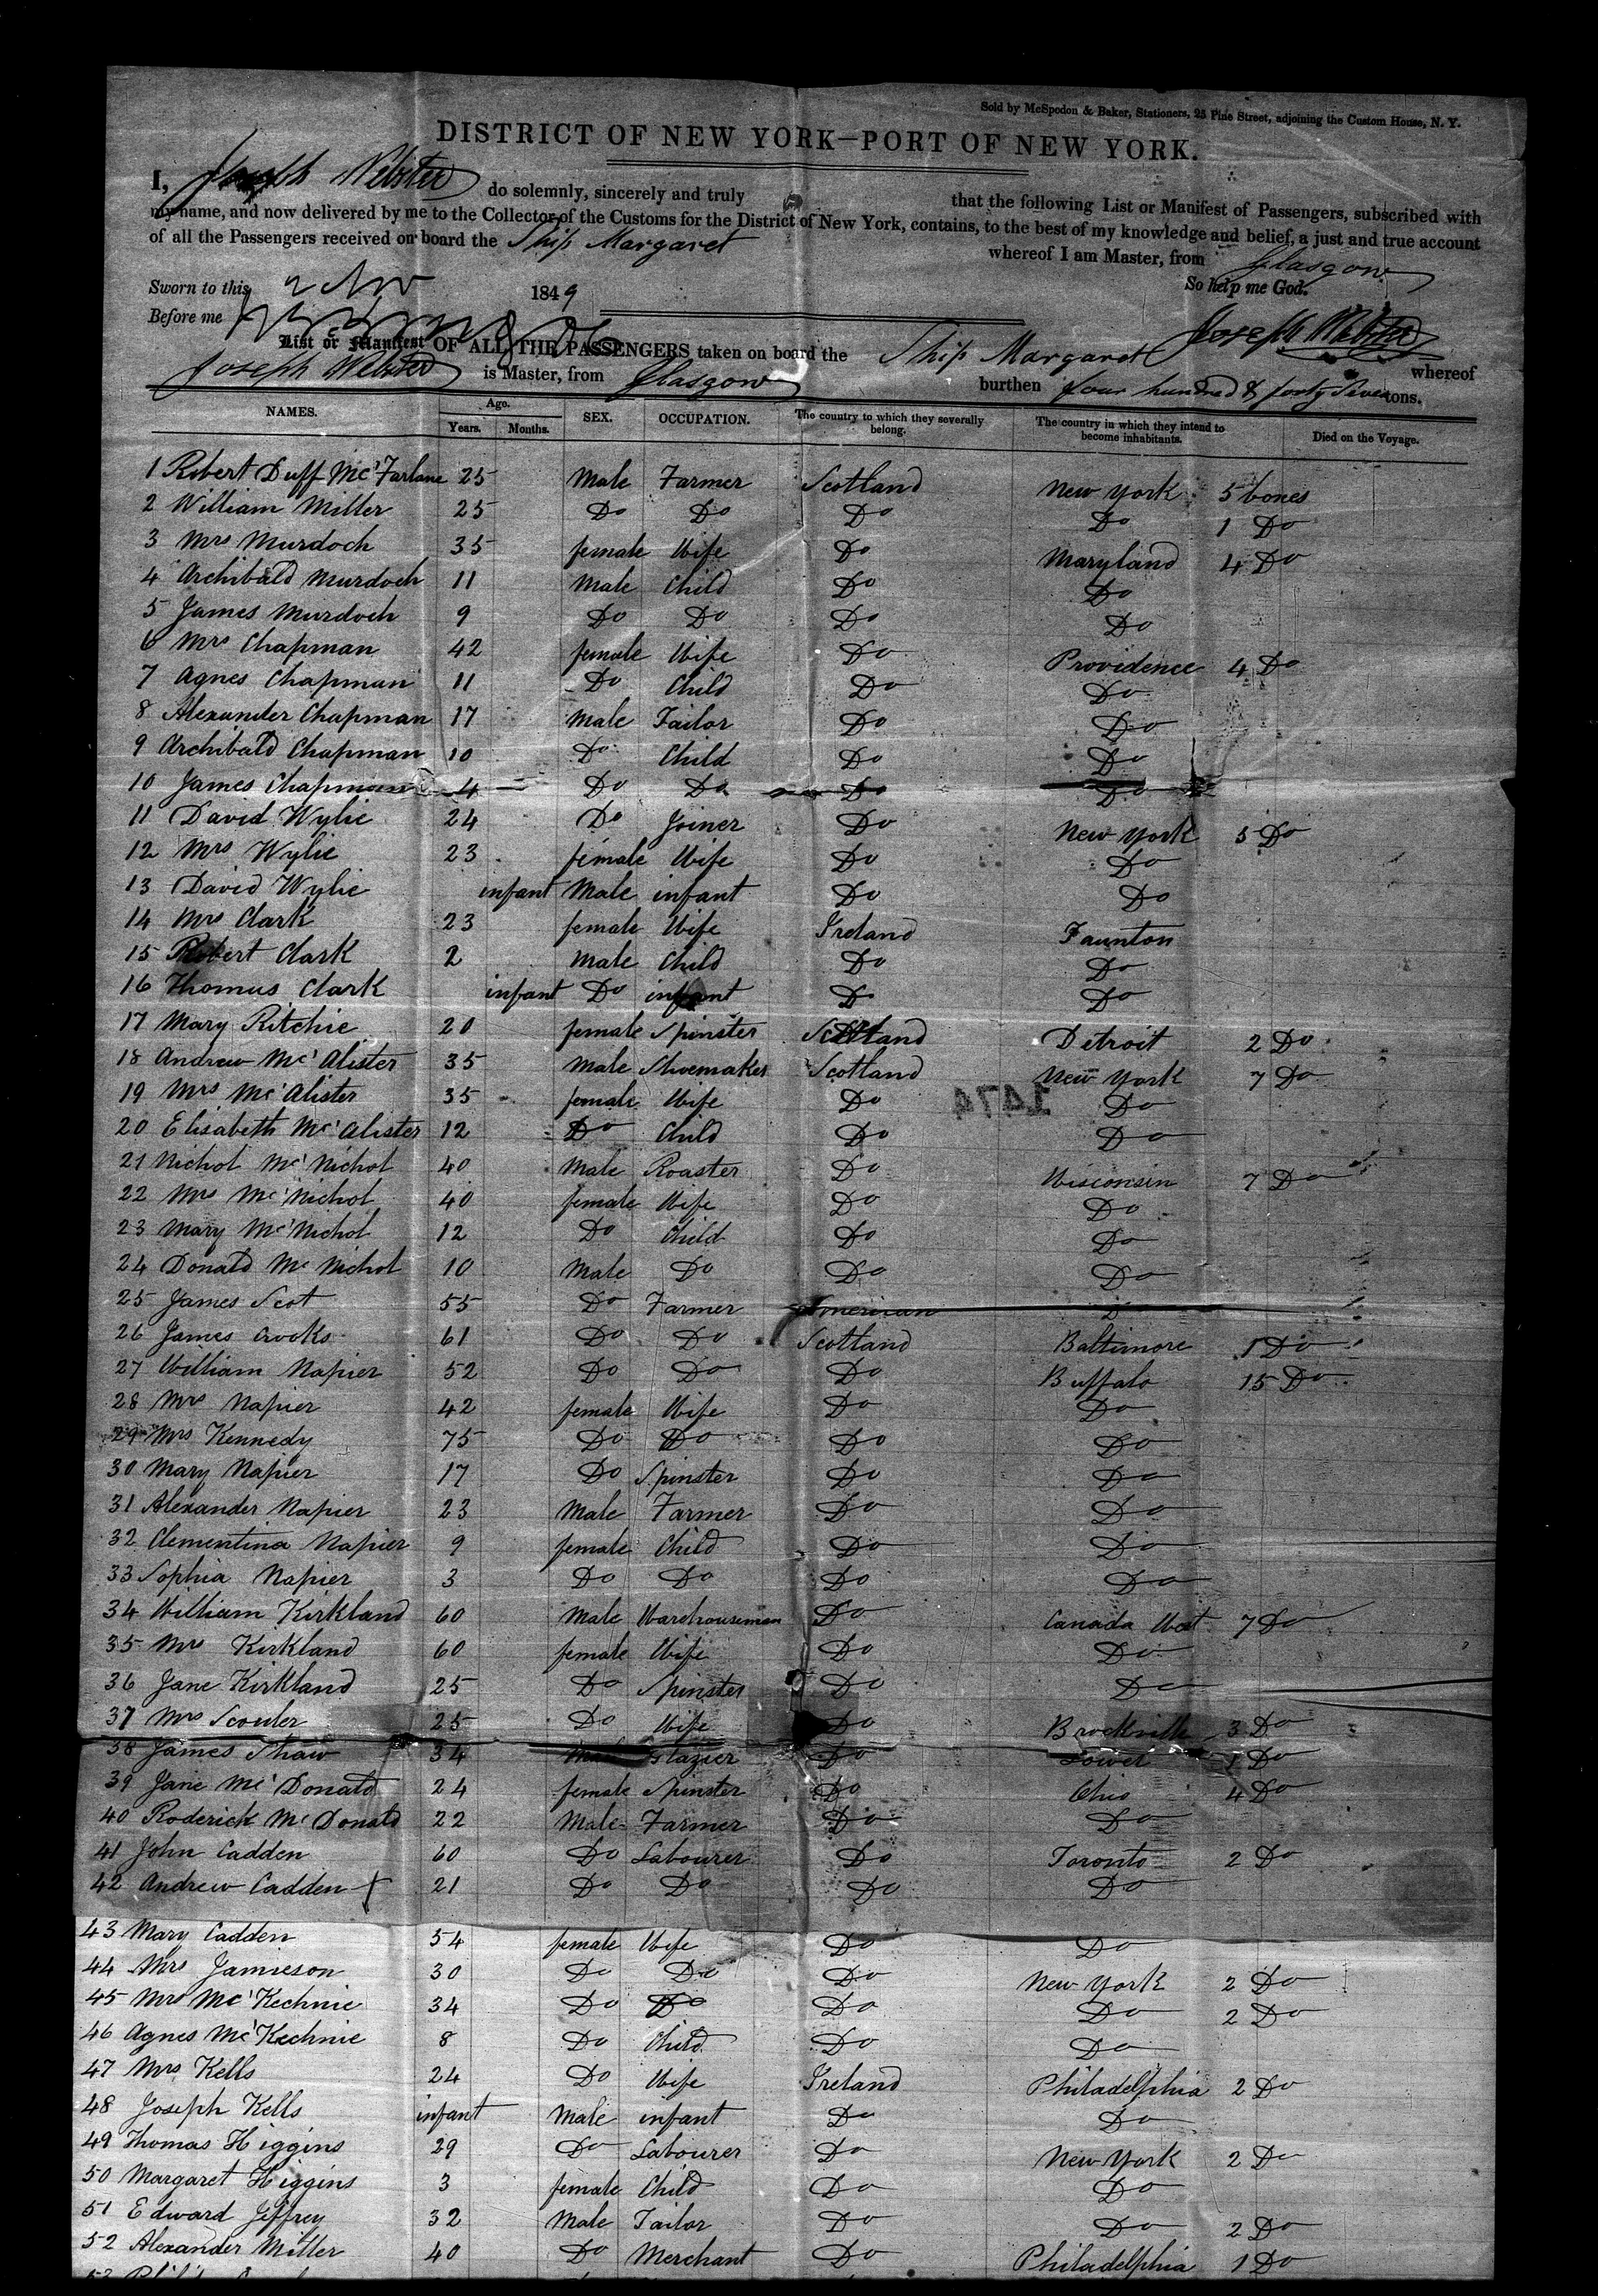 Sold by McSpedon & Baker, Stationers, 25 Pine Street, adjoining the Custom House, N. Y.
DISTRICT OF NEW YORK—PORT OF NEW YORK.
I, Joseph Webster do solemnly, sincerely and truly that the following List or Manifest of Passengers, subscribed with
my name, and now delivered by me to the Collector of the Customs for the District of New York, contains, to the best of my knowledge and belief, a just and true account
of all the Passengers received on board the Ship Margaret whereof I am Master, from Glasgow
So help me God.
Sworn to this 2 Nov 1849
Before me
Joseph Webster
List or Manifest OF ALL THE PASSENGERS taken on board the Ship Margaret whereof
Joseph Webster is Master, from Glasgow burthen four hundred & forty Seven tons.
NAMES. Age. Years. Months. SEX. OCCUPATION. The country to which they severally belong. The country in which they intend to become inhabitants. Died on the Voyage.
1 Robert Duff Mc'Farlane 25 Male Farmer Scotland New York 5 boxes
2 William Miller 25 Do Do Do Do 1 Do
3 Mrs Murdoch 35 female Wife Do Maryland 4 Do
4 Archibald Murdoch 11 Male Child Do Do
5 James Murdoch 9 Do Do Do Do
6 Mrs Chapman 42 female Wife Do Providence 4 Do
7 Agnes Chapman 11 Do Child Do Do
8 Alexander Chapman 17 Male Tailor Do Do
9 Archibald Chapman 10 Do Child Do Do
10 James Chapman 4 Do Do Do Do
11 David Wylie 24 Do Joiner Do New York 5 Do
12 Mrs Wylie 23 female Wife Do Do
13 David Wylie infant Male infant Do Do
14 Mrs Clark 23 female Wife Ireland Taunton
15 Robert Clark 2 Male Child Do Do
16 Thomas Clark infant Do infant Do Do
17 Mary Ritchie 20 female Spinster Scotland Detroit 2 Do
18 Andrew Mc'Alister 35 Male Shoemaker Scotland New York 7 Do
19 Mrs Mc'Alister 35 female Wife Do Do
1474
20 Elisabeth Mc'Alister 12 Do Child Do Do
21 Nichol Mc'Nichol 40 Male Roaster Do Wisconsin 7 Do
22 Mrs Mc'Nichol 40 female Wife Do Do
23 Mary Mc'Nichol 12 Do Child Do Do
24 Donald Mc Nichol 10 Male Do Do Do
25 James Scot 55 Do Farmer American D
26 James Crooks 61 Do Do Scotland Baltimore 1 Do
27 William Napier 52 Do Do Do Buffalo 15 Do
28 Mrs Napier 42 female Wife Do Do
29 Mrs Kennedy 75 Do Do Do Do
30 Mary Napier 17 Do Spinster Do Do
31 Alexander Napier 23 Male Farmer Do Do
32 Clementina Napier 9 female Child Do Do
33 Sophia Napier 3 Do Do Do Do
34 William Kirkland 60 Male Warehouseman Do Canada West 7 Do
35 Mrs Kirkland 60 female Wife Do Do
36 Jane Kirkland 25 Do Spinster Do Do
37 Mrs Scouler 25 Do Wife Do Brockville 3 Do
38 James Shaw 34 Male Glazier Do Lowel 1 Do
39 Jane Mc'Donald 24 female Spinster Do Ohio 4 Do
40 Roderick Mc'Donald 22 Male Farmer Do Do
41 John Cadden 60 Do Labourer Do Toronto 2 Do
42 Andrew Cadden 21 Do Do Do Do
43 Mary Cadden 54 female Wife Do Do
44 Mrs Jamieson 30 Do Do Do New York 2 Do
45 Mrs Mc'Kechnie 34 Do Do Do Do 2 Do
46 Agnes Mc'Kechnie 8 Do Child Do Do
47 Mrs Kells 24 Do Wife Ireland Philadelphia 2 Do
48 Joseph Kells infant Male infant Do Do
49 Thomas Higgins 29 Do Labourer Do New York 2 Do
50 Margaret Higgins 3 female Child Do Do
51 Edward Jeffrey 32 Male Tailor Do Do 2 Do
52 Alexander Miller 40 Do Merchant Do Philadelphia 1 Do